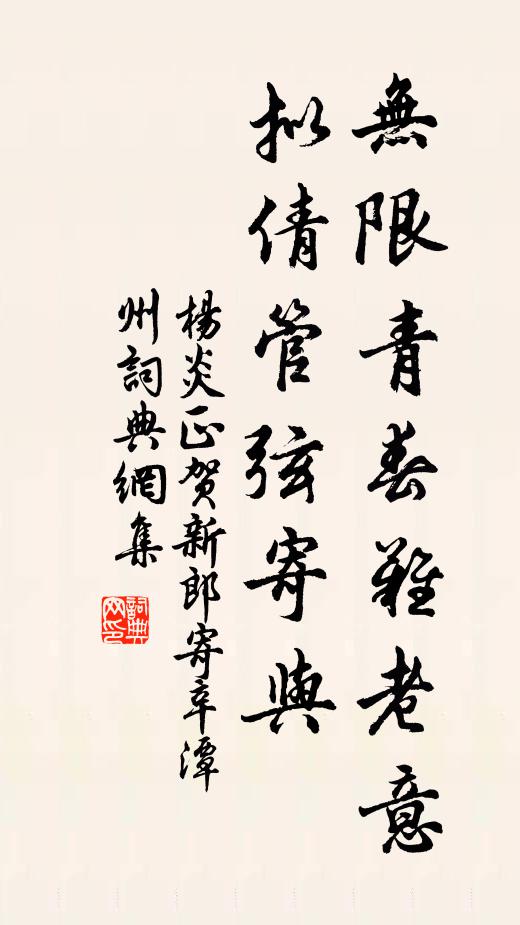 無限青春難老意
拟倩管弦寄與
楊炎正贺新郎寄辛潭
州詞典網集
詞典
网印